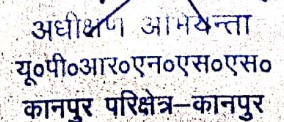 अधीक्षण अभियन्ता
यू०पी०आर०एन०एस०एस०
कानपुर परिक्षेत्र–कानपुर